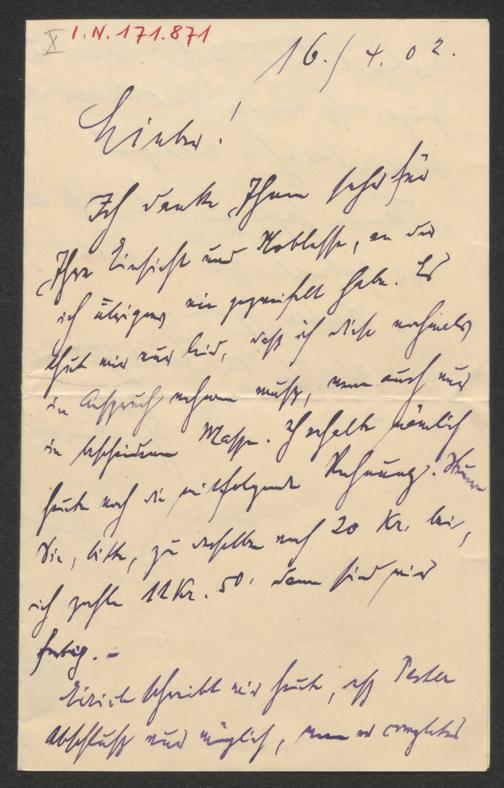 X I.N. 171.871
16./4. 02.
Lieber!
Ich danke Ihnen sehr für
Ihre Einsicht und Noblesse, an der
ich übrigens nie gezweifelt habe. Es
thut mir nur leid, daß ich diese nochmals
in Anspruch nehmen muß, wenn auch nur
in bescheidenem Masse. Ich erhalte nämlich
heute noch die mitfolgende Rechnung.
Sie, bitte, zu derselben noch 20 Kr. bei,
ich zahle 12 Kr. 50, dann sind wir
fertig. –
schreibt mir heute, daß
Abschluß nur möglich, wenn er completes